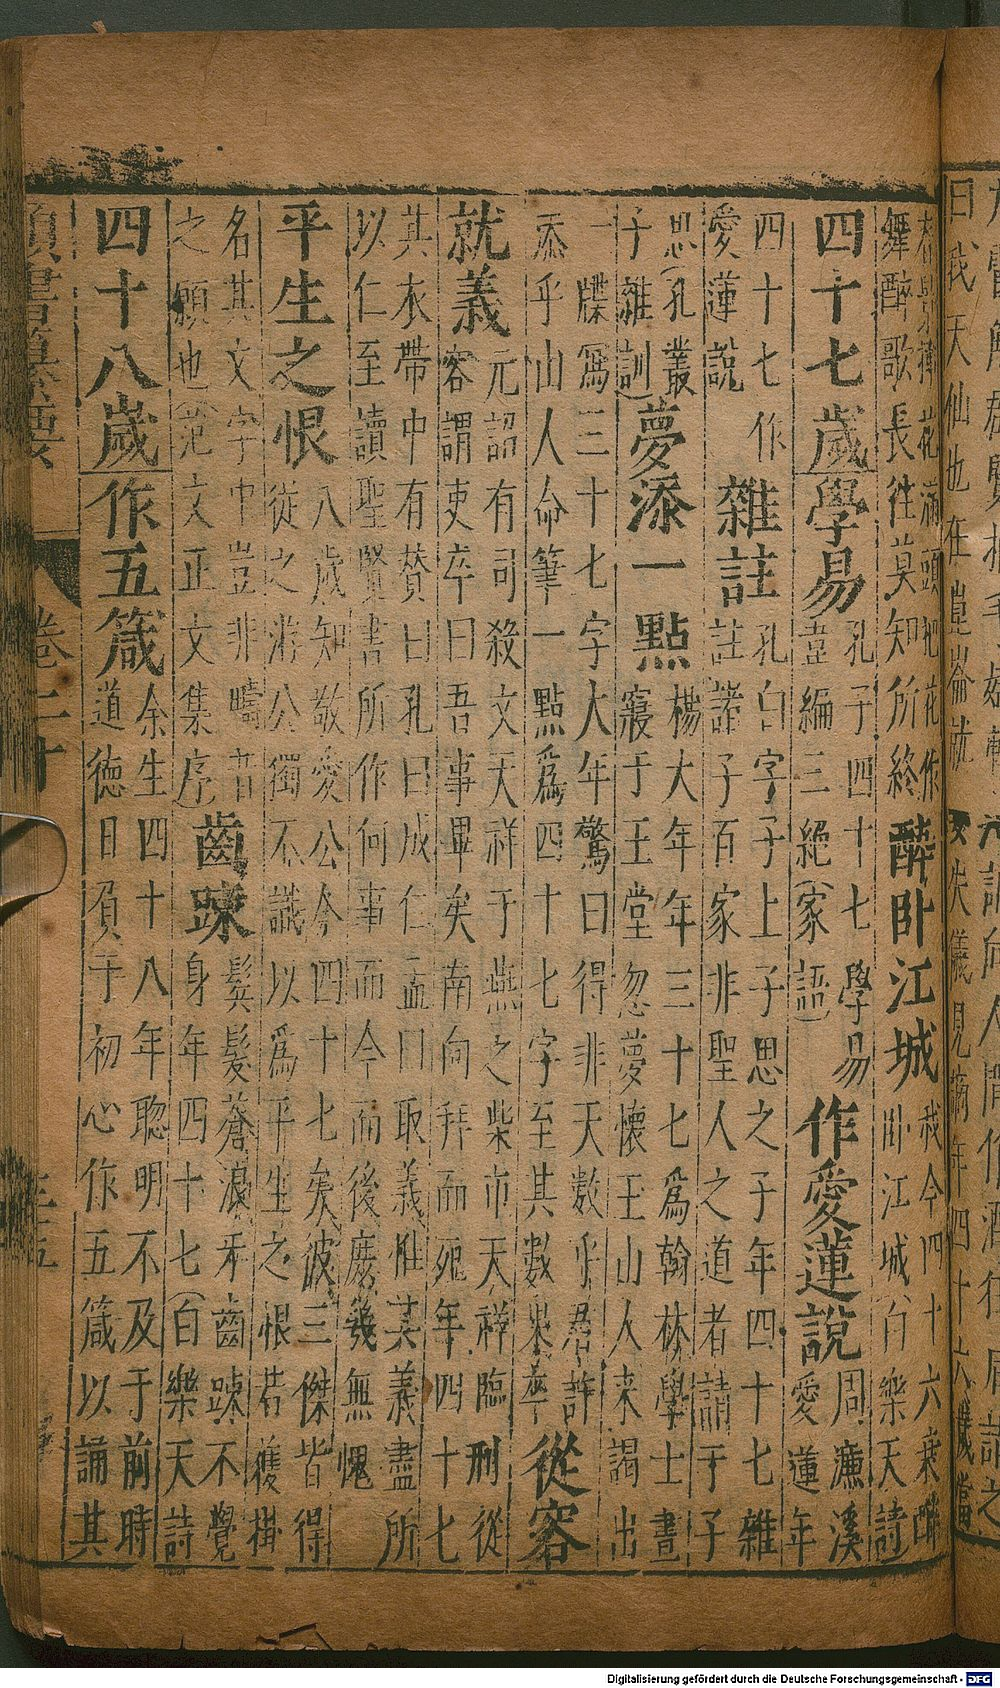 曰我天仙也在崑崙
花滿頭把花作
舞醉歌長往莫知所終
醉臥江城
我今四十六衰醉
臥江城白樂天詩
四十七歲學易
孔子四十七學易
韋編三絕(家語)
作愛蓮說
周濂溪
愛蓮年
四十七作
愛蓮說
雜註
孔白字子上子思之子年四十七雜
註諸子百家非聖人之道者請于子
思(孔叢
子雜訓)
夢添一點
楊大年年三十七爲翰林學士晝
寢于玉堂忽夢懷玉山人来謁出
一牒寫三十七字大年驚曰得非天數乎君許
添乎山人命筆一點爲四十七字至其數果卒
從容
就義
元詔有司殺文天祥于燕之柴市天祥臨刑從
容謂吏卒曰吾事畢矣南向拜而死年四十七
其衣帶中有贊曰孔曰成仁孟曰取義惟其義盡所
以仁至讀聖賢書所作何事而今而後庶幾無愧
平生之恨
八歲知敬愛公今四十七矣彼三傑皆得
從之游公獨不識以爲平生之恨若獲掛
名其文字中豈非疇昔
之願也(范文正文集序)
齒踈
鬂髮蒼浪牙齒踈不覺
身年四十七(白樂天詩
四十八歲作五箴
余生四十八年聰明不及于前時
道德日負于初心作五箴以誦其
類書纂要
卷二十
三五
Digitalisierung gefördert durch die Deutsche Forschungsgemeinschaft - DFG